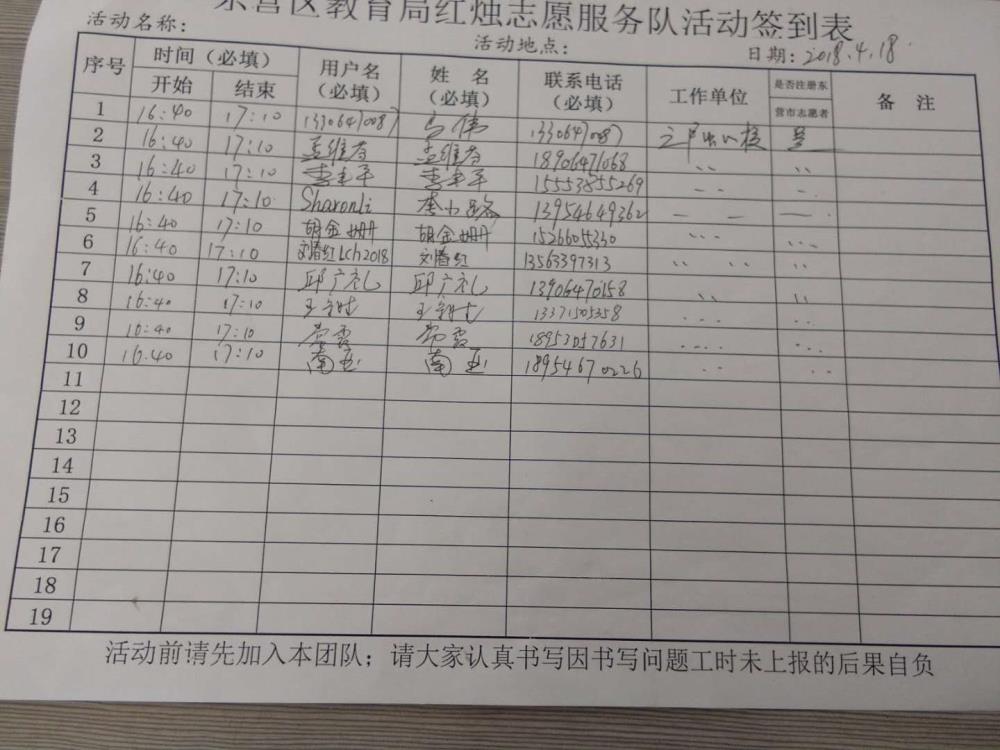 东营区教育局红烛志愿服务队活动签到表
活动名称： 活动地点： 日期：2018.4.18
序号 时间（必填） 用户名（必填） 姓名（必填） 联系电话（必填） 工作单位 是否注册东营市志愿者 备注
开始 结束
1 16:40 17:10 13306470087 伟 13306470087 是
2 16:40 17:10 孟维芳 孟维芳 18906471068 〃 〃
3 16:40 17:10 李丰平 李丰平 15553855269
4 16:40 17:10 Sharonli 李小路 13954649362
5 16:40 17:10 胡金姗 胡金姗 15266055330
6 16:40 17:10 刘春红Lch2018 刘春红 13563397313 〃 〃 〃
7 16:40 17:10 邱广礼 邱广礼 13906470158 〃 〃
8 16:40 17:10 13371505358
9 16:40 17:10 常霞 常霞 18953057631
10 16:40 17:10 南亚 南亚 18954670226
11
12
13
14
15
16
17
18
19
活动前请先加入本团队；请大家认真书写因书写问题工时未上报的后果自负